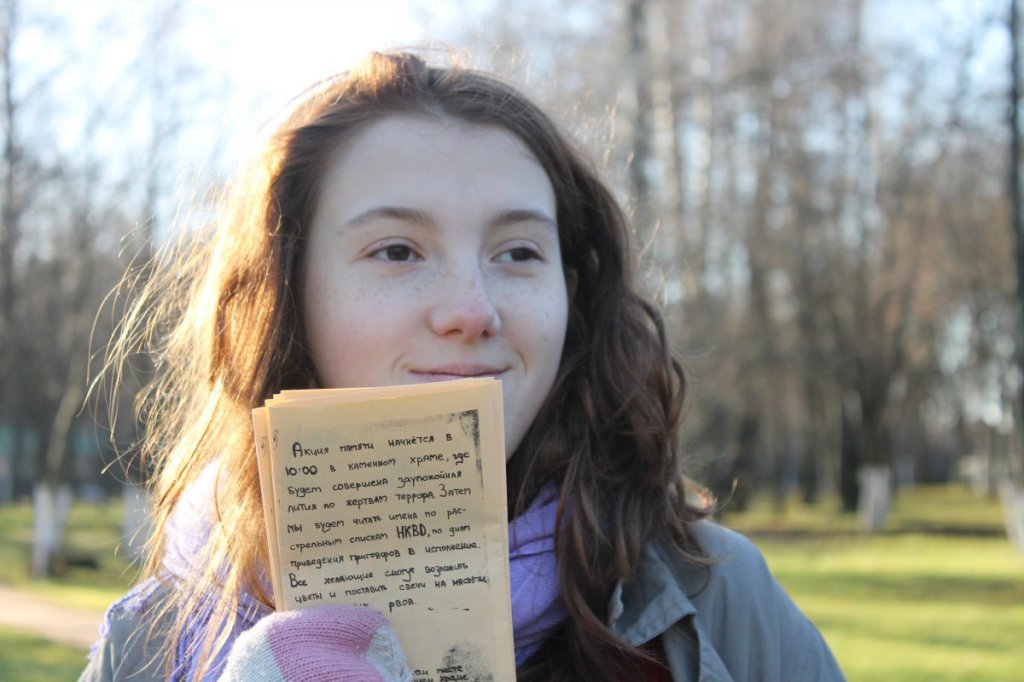 Акция памяти начнётся в
10:00 в каменном храме, где
будет совершена заупокойная
лития по жертвам террора. Затем
мы будем читать имена по рас-
стрельным спискам НКВD, по дням
приведения приговоров в исполнение.
Все желающие смогут возложить
цветы и поставить свечи на насыпи
рвов.
месте
храме